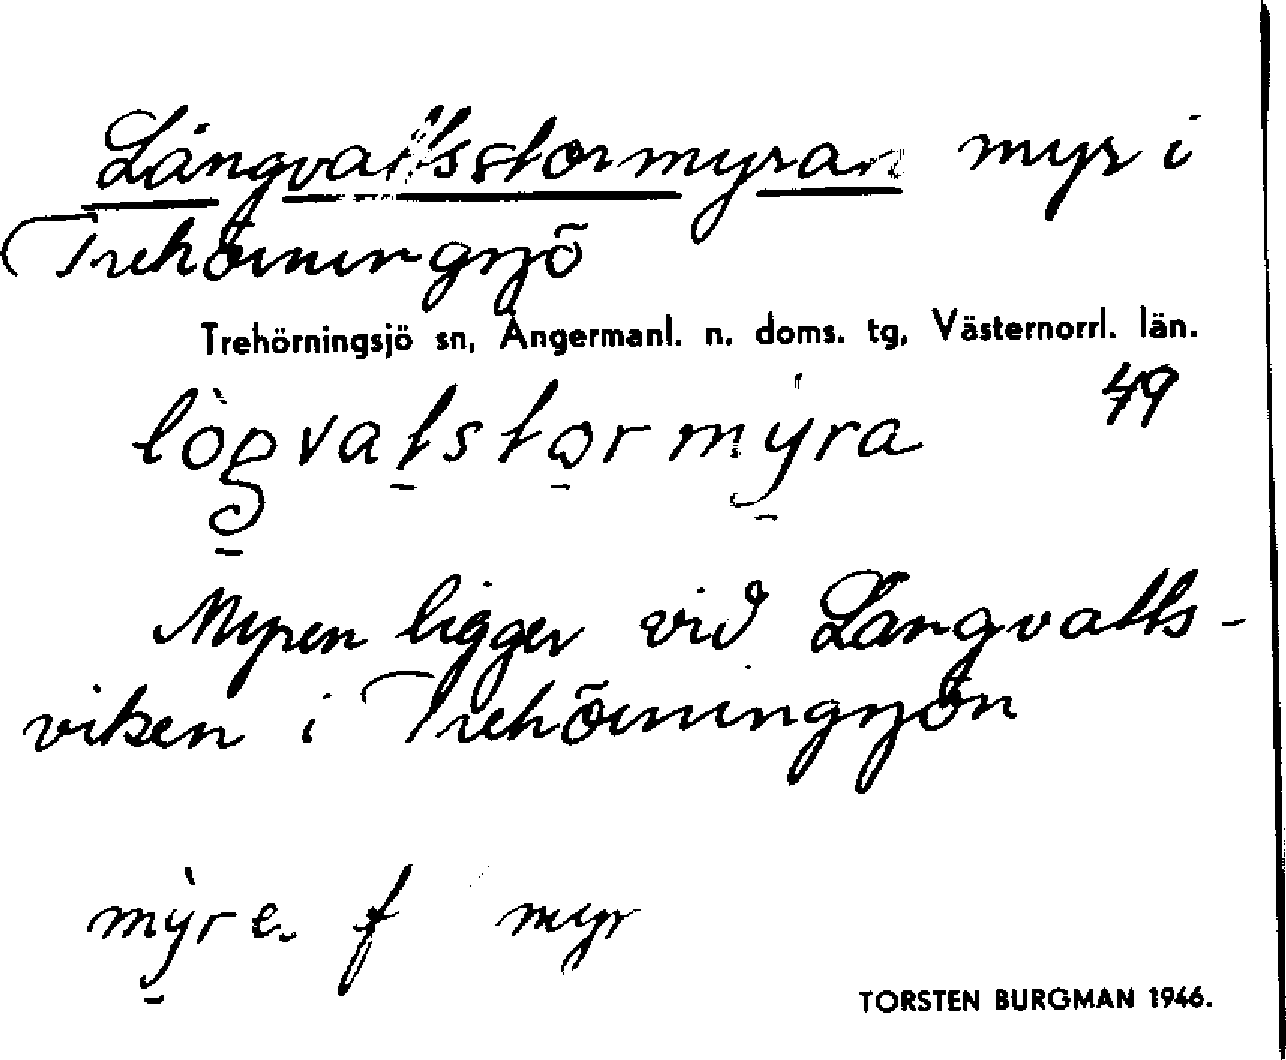 Långvattsstormyran myr i
Trehörningsjö
Trehörningsjö sn, Ångermanl. n. doms. tg, Västernorrl. län.
49
Myren ligger vid Långvatts-
viken i Trehörningsjön
f myr
TORSTEN BURGMAN 1946.